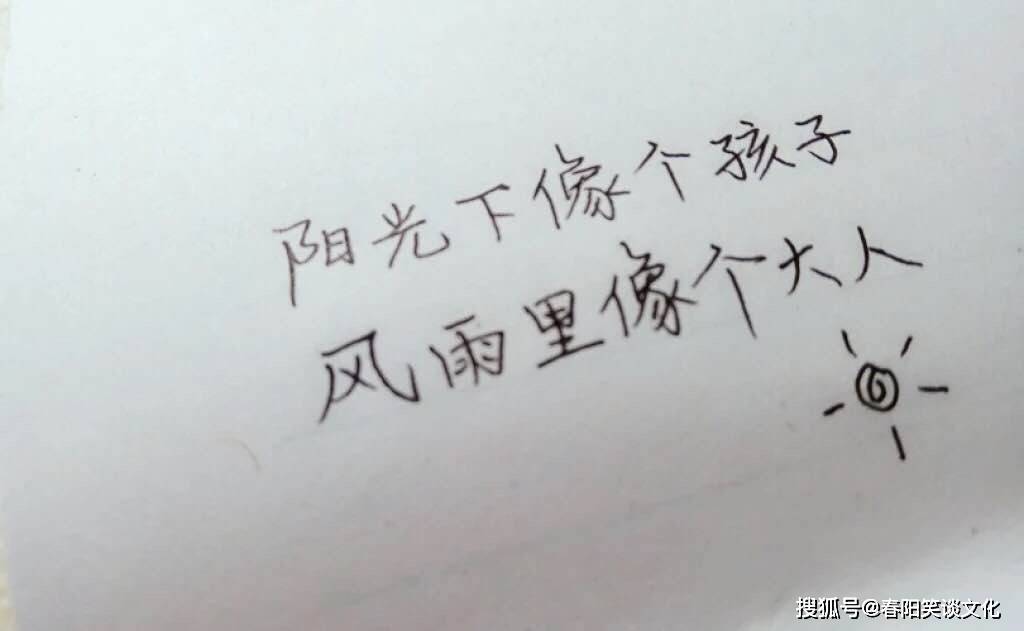 阳光下像个孩子
风雨里像个大人
搜狐号@春阳笑谈文化